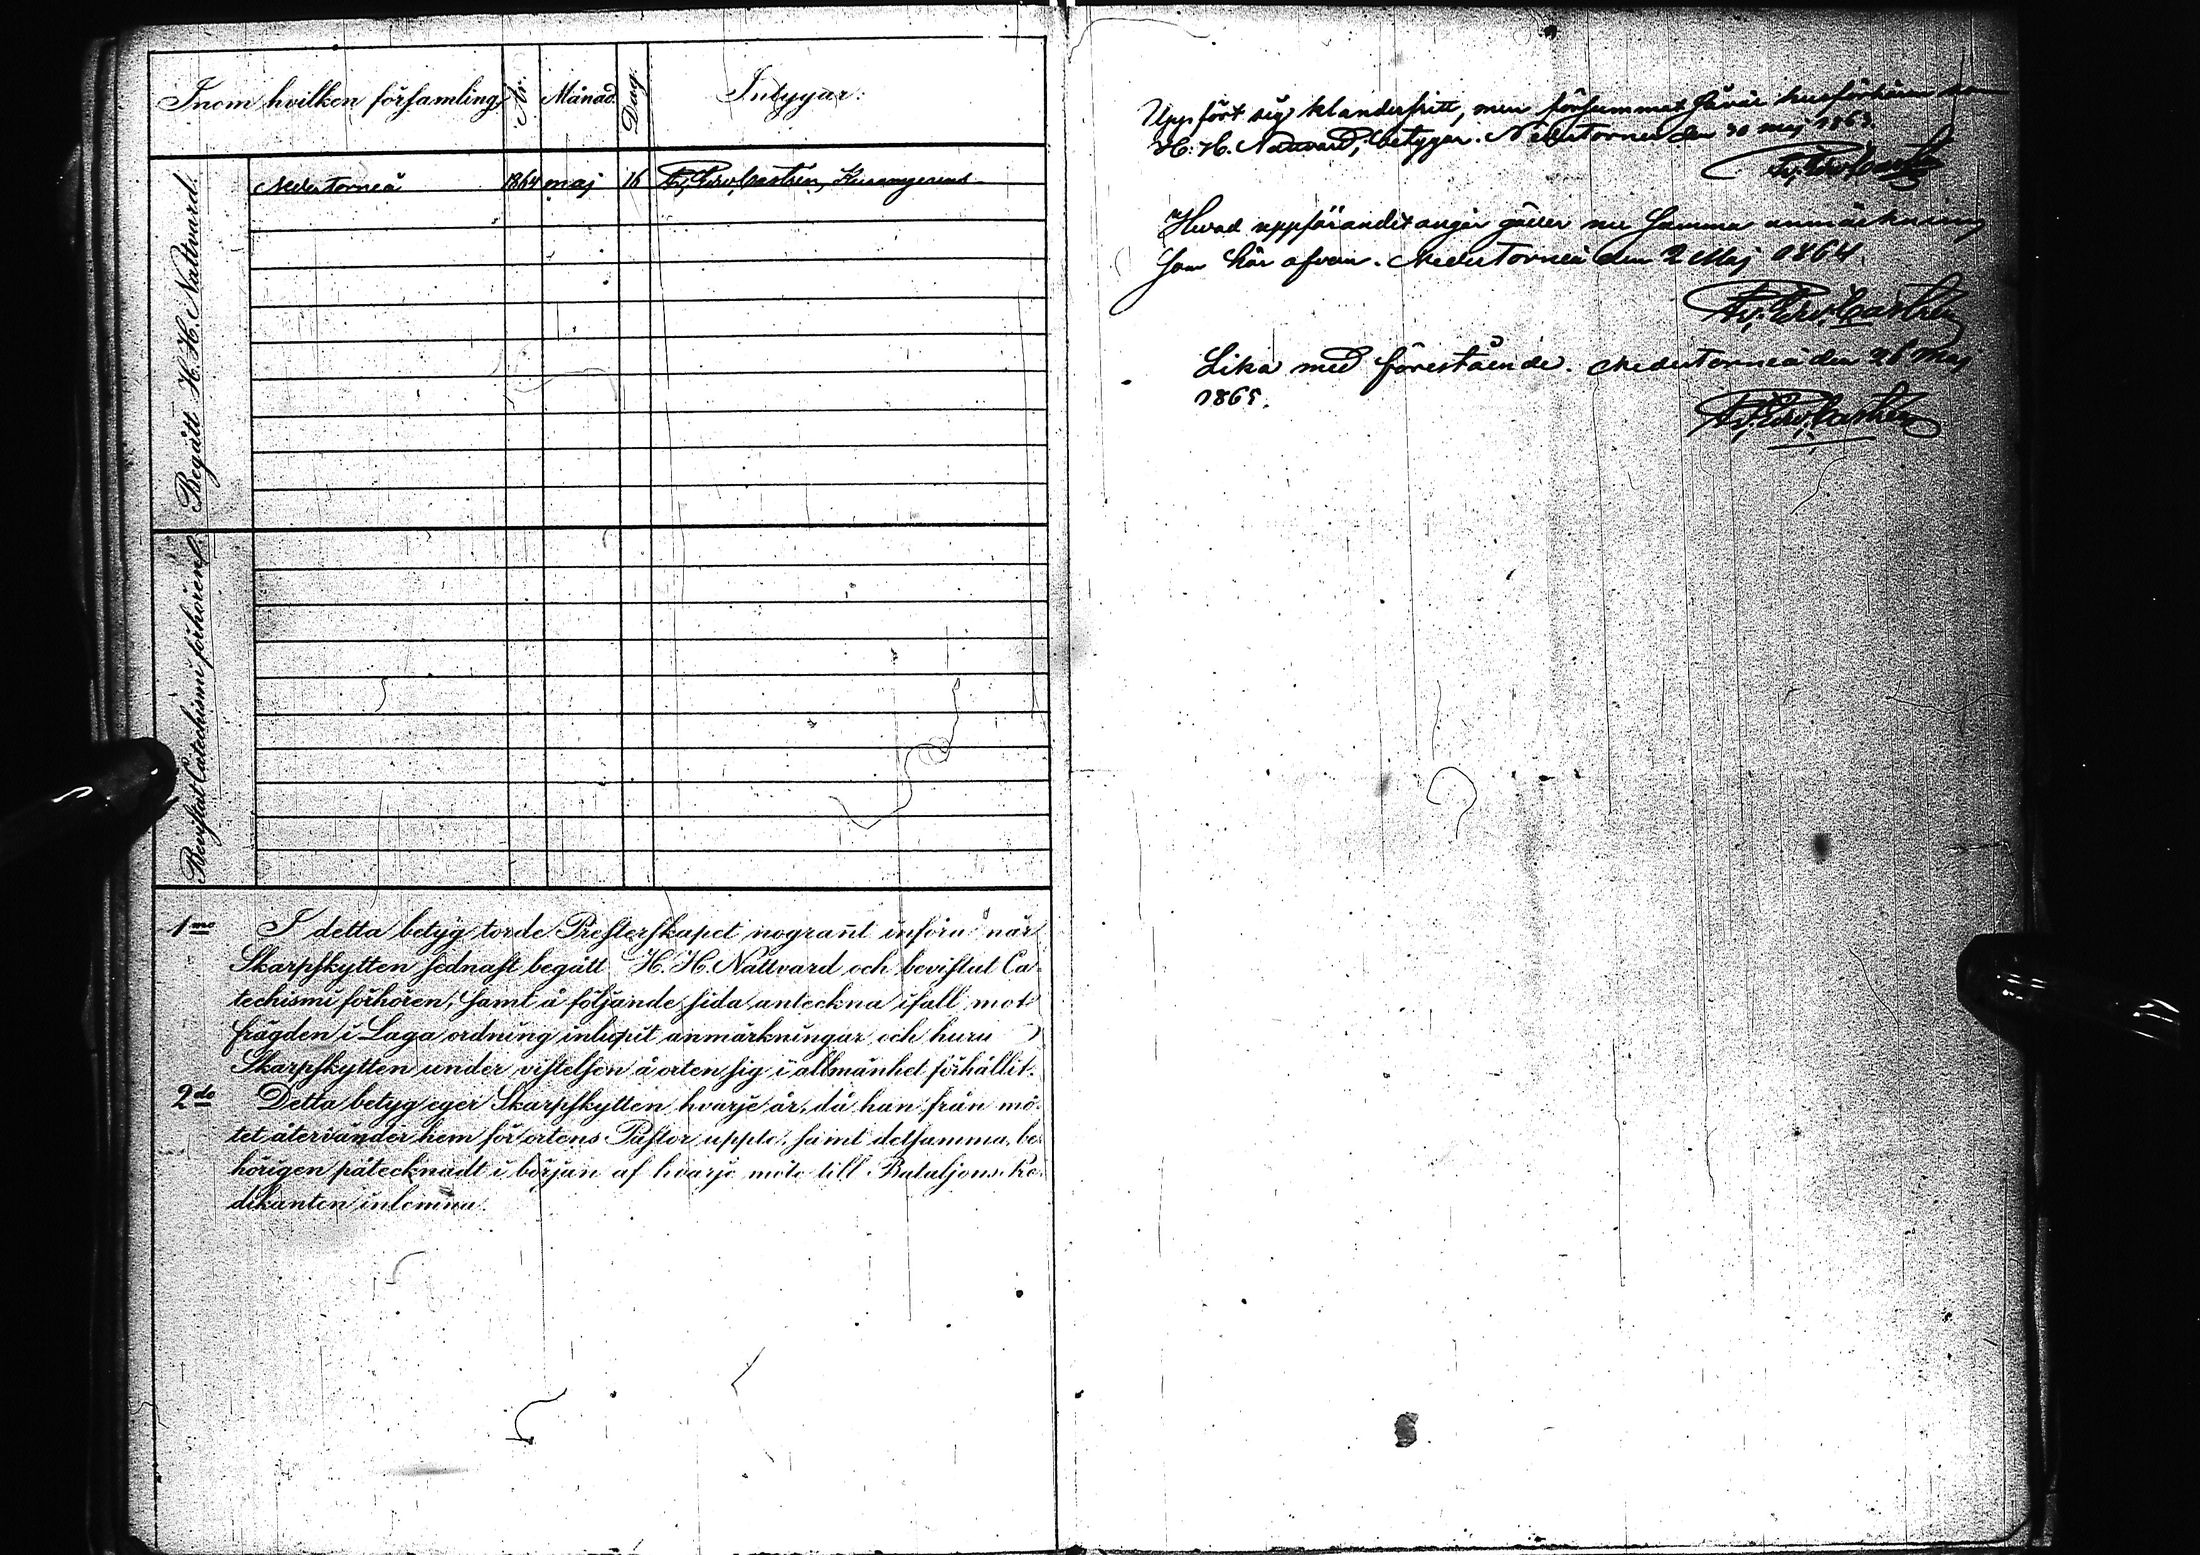 Inom hvilken församling År. Månad. Dag. Intygar:
Begått H. H. Nattvard.
Neder Torneå 1864 maj 16 Fr. Edv. Castrén,
Bevistat Catechismi förhören.
1mo I detta betyg torde Presterskapet nogrant införa när
Skarpskytten sednast begått H. H. Nattvard och bevistat Ca-
techismi förhören, samt å följande sida anteckna ifall mot
frägden i Laga ordning inlupit anmärkningar och huru
Skarpskytten under vistelsen å orten sig i allmänhet förhållit.
2do Detta betyg eger Skarpskytten hvarje år, då han från mö-
tet återvänder hem för ortens Pastor uppte, samt detsamma, be-
hörigen påtecknadt i början af hvarje möte till Bataljons Pre-
dikanten inlemna.
Uppfört sig klanderfritt, men försummat såväl husförhören som
H. H. Nattvard, betygar. Nedertorneå den 30 maj 1863.
Hvad uppförandet angår gäller nu samma anmärkning
som här ofvan. Neder Torneå den 2 Maj 1864.
Fr. Edv. Castrén
Lika med förestående. Neder Torneå den 28 Maj
1865.
Fr. Edv. Castrén